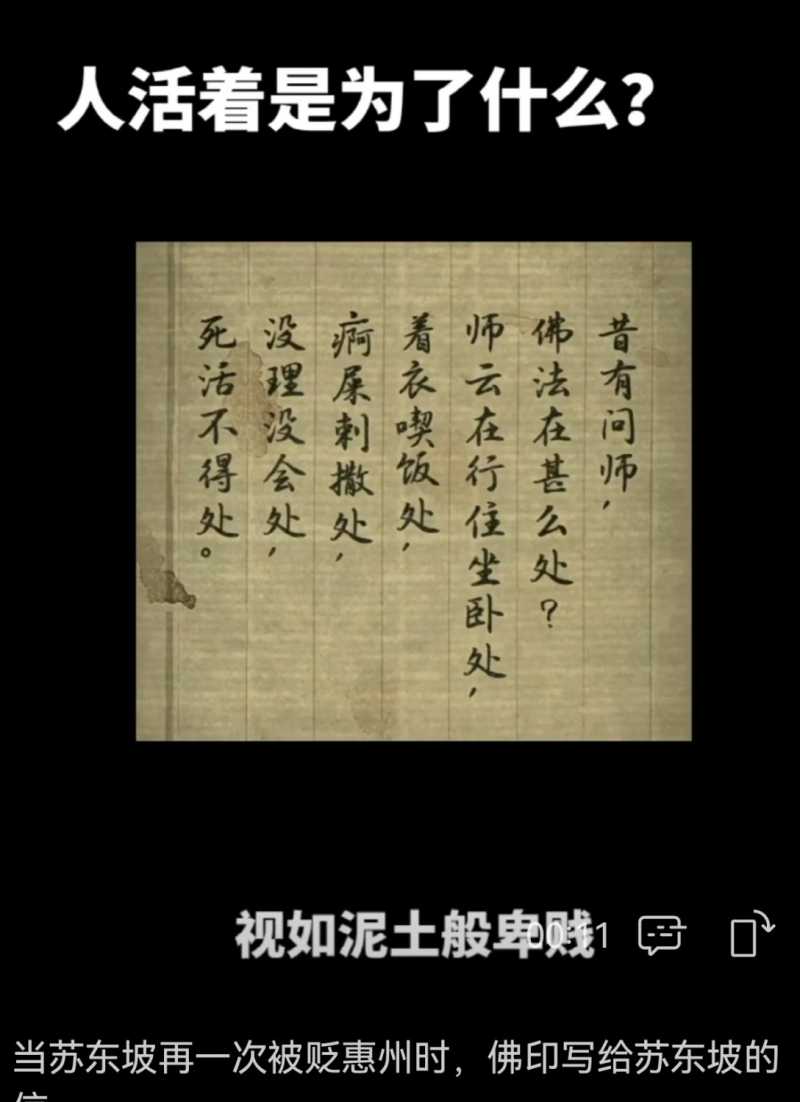 人活着是为了什么？
昔有问师，
佛法在甚么处？
师云在行住坐卧处，
着衣喫饭处，
痾屎刺撒处，
没理没会处，
死活不得处。
视如泥土般卑贱
00:11
当苏东坡再一次被贬惠州时，佛印写给苏东坡的